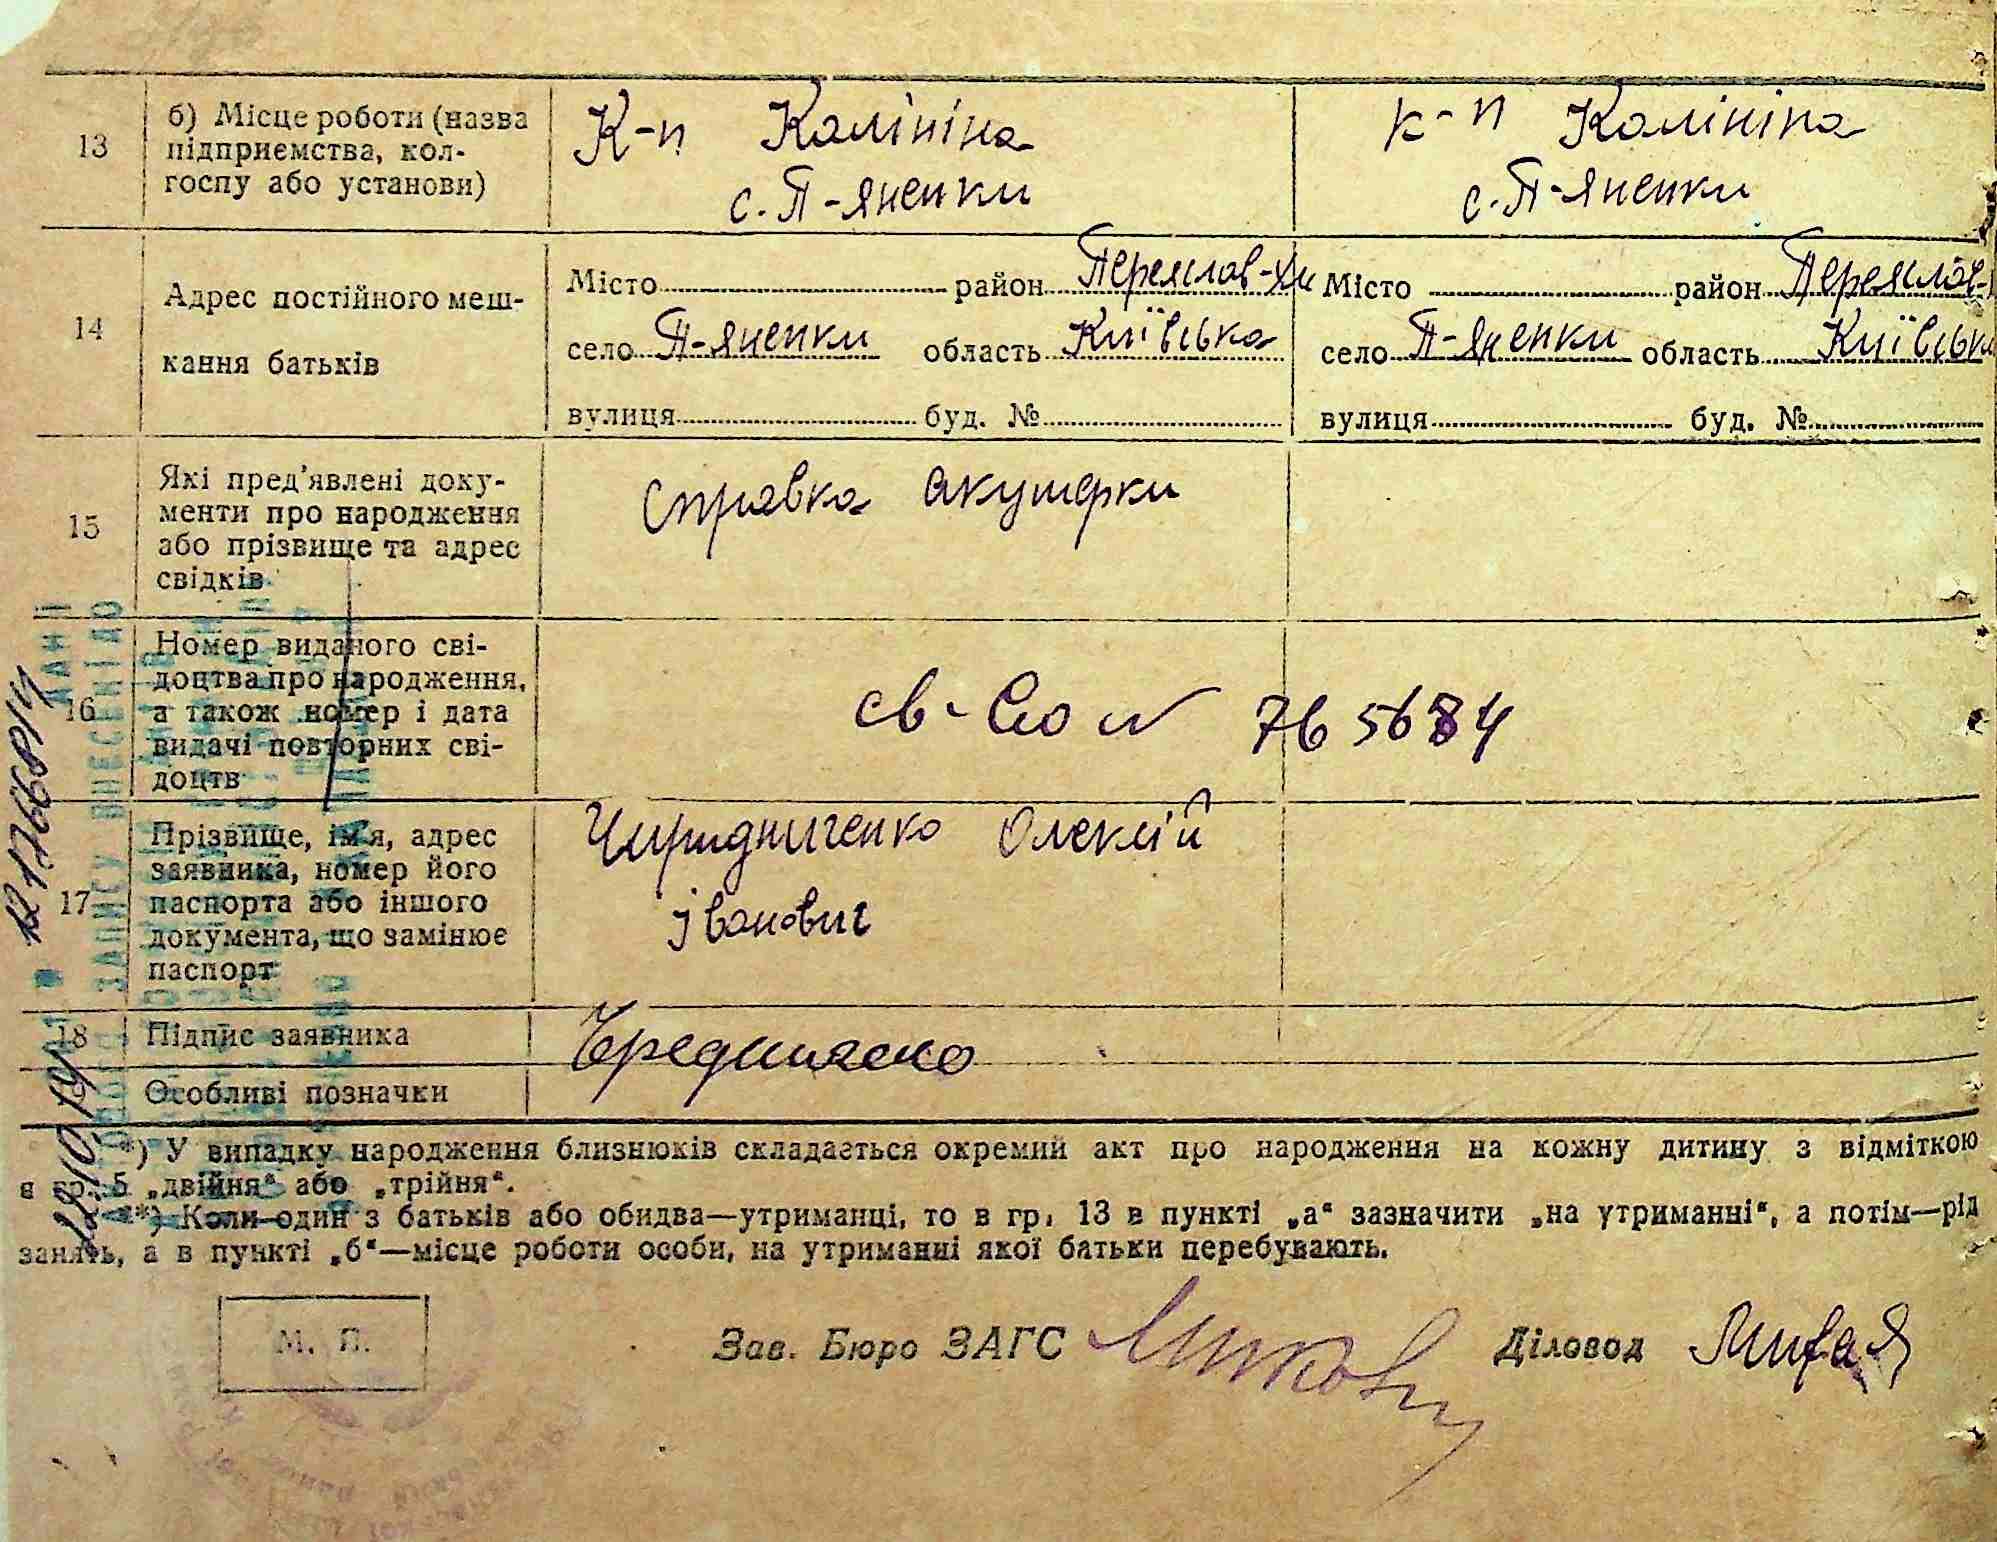 13
б) Місце роботи (назва
підприємства, кол-
госпу або установи)
К-п Калініна
с. П-яненки
к-п Калініна
с. П-яненки
14
Адрес постійного меш-
кання батьків
Місто район Переяслав-Хм
село П-яненки область Київська
вулиця буд. №
Місто район Переяслав-
село П-яненки область Київська
вулиця буд. №
15
Які пред'явлені доку-
менти про народження
або прізвище та адрес
свідків
Справка акушерки
16
Номер виданого сві-
доцтва про народження,
а також номер і дата
видачі повторних сві-
доцтв
св-во N 765684
17
Прізвище, ім'я, адрес
заявника, номер його
паспорта або іншого
документа, що замінює
паспорт
Чиридниченко Олексій
Іванович
18
Підпис заявника
19
Особливі позначки
*) У випадку народження близнюків складається окремий акт про народження на кожну дитину з відміткою
в гр. 5 „двійня“ або „трійня“.
**) Коли один з батьків або обидва—утриманці, то в гр. 13 в пункті „а“ зазначити „на утриманні“, а потім—рід
занять, а в пункті „б“—місце роботи особи, на утриманні якої батьки перебувають.
М. П.
Зав. Бюро ЗАГС
Діловод